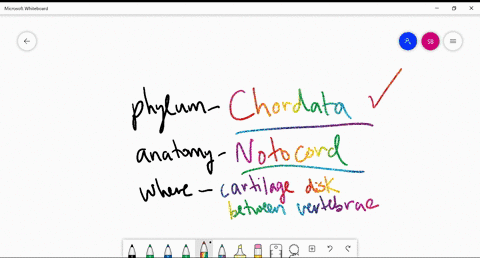 Microsoft Whiteboard
SB
phylum - Chordata
anatomy - Notocord
where - cartilage disk
between vertebrae